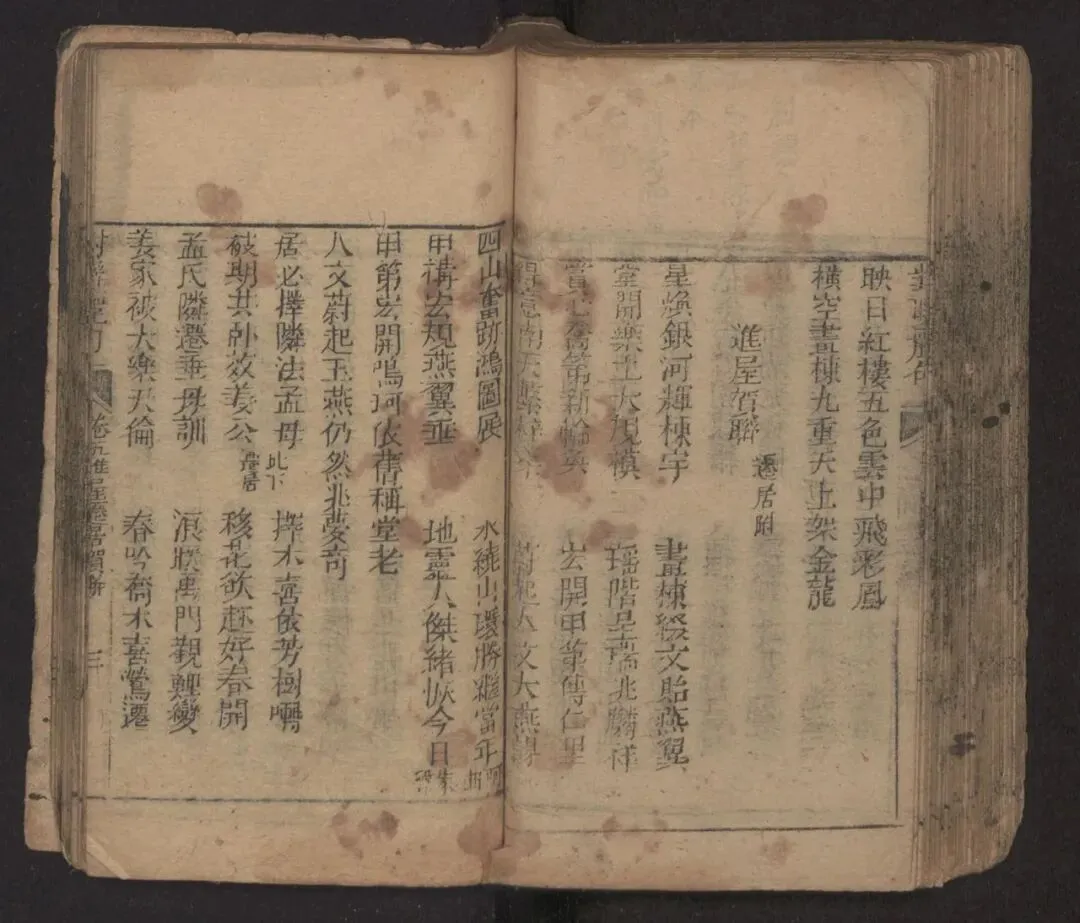 映日紅樓五色雲中飛彩鳳
橫空畫棟九重天上架金龍
進屋賀聯 遷居附
星煥銀河輝棟宇 畫棟綴文貽燕翼
堂開樂土大規模 瑤階呈瑞兆麟祥
喬第新輪奐 宏開甲第傳仁里
人文大燕
四山奮跡鴻圖展 水繞山環勝繼當年
甲構宏規燕翼垂 地靈人傑緒恢今日
甲第宏開鳴珂依舊稱堂老
人文蔚起玉燕仍然兆夢奇
居必擇隣法孟母 此下遷居 擇木喜依芳樹囀
被期共臥效姜公 移花欲趁好春開
孟氏隣遷垂母訓 浪躍禹門觀鯉變
姜家被大樂天倫 春吟喬木喜鶯遷
卷 進屋遷居賀聯 三